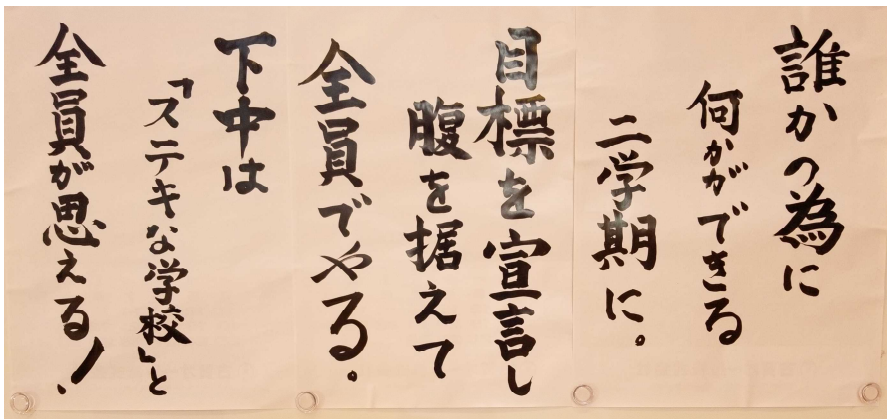 誰かの為に
何かができる
二学期に。
目標を宣言し
腹を据えて
全員でやる。
下中は
「ステキな学校」と
全員が思える!